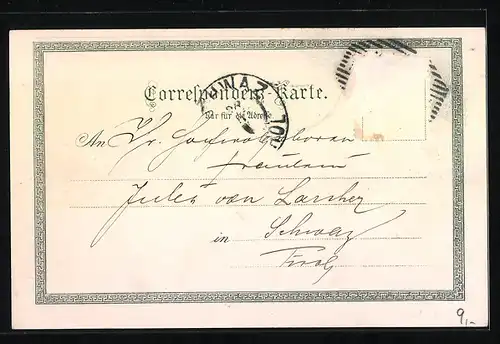 Correspondenz-Karte.
Nur für die Adresse
SCHWAZ
TIROL
An Sr. Hochwohlgeboren
Fräulein
von Larcher
in Schwaz
Tirol
9,-